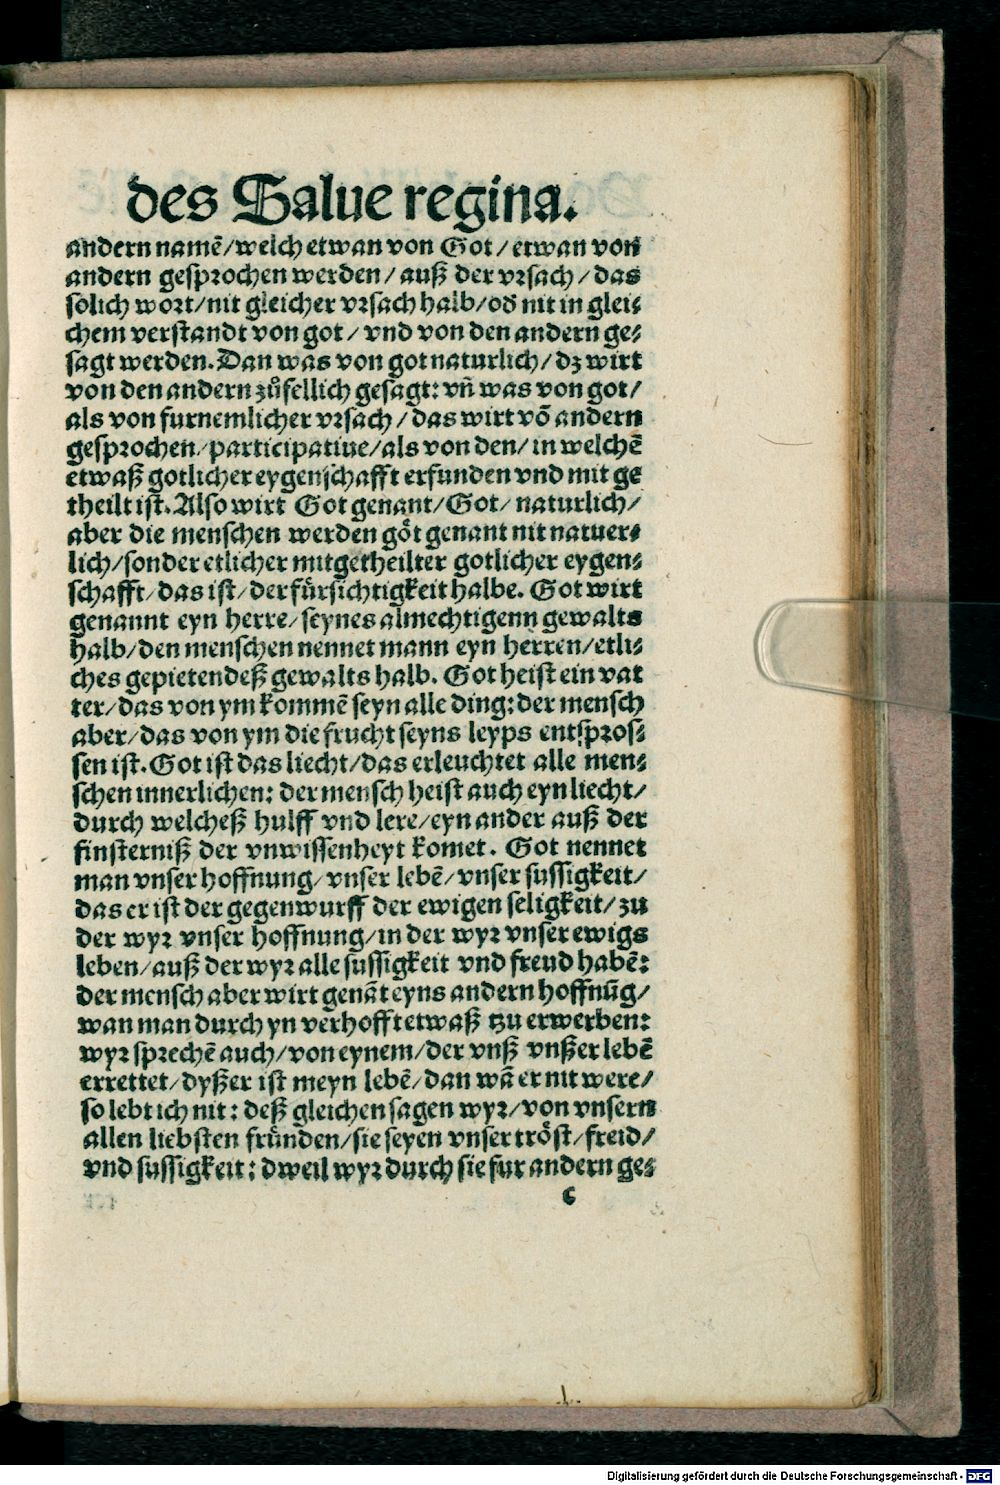 des Salue regina.
andern namẽ/welch etwan von Got/etwan von
andern gesprochen werden/auß der vrsach/das
solich wort/nit gleicher vrsach halb/oď nit in glei⸗
chem verstandt von got/vnd von den andern ge⸗
sagt werden. Dan was von got naturlich/dz wirt
von den andern zůfellich gesagt: vñ was von got/
als von furnemlicher vrsach/das wirt võ andern
gesprochen/participatiue/als von den/in welchẽ
etwaß gotlicher eygenschafft erfunden vnd mit ge
theilt ist. Also wirt Got genant/Got/naturlich/
aber die menschen werden göt genant nit natuer⸗
lich/sonder etlicher mitgetheilter gotlicher eygen⸗
schafft/das ist/der fürsichtigkeit halbe. Got wirt
genannt eyn herre/seynes almechtigenn gewalts
halb/den menschen nennet mann eyn herren/etli⸗
ches gepietendeß gewalts halb. Got heist ein vat
ter/das von ym kommẽ seyn alle ding: der mensch
aber/das von ym die frucht seyns leyps entspros⸗
sen ist. Got ist das liecht/das erleuchtet alle men⸗
schen innerlichen: der mensch heist auch eyn liecht/
durch welcheß hulff vnd lere/eyn ander auß der
finsterniß der vnwissenheyt komet. Got nennet
man vnser hoffnung/vnser lebẽ/vnser sussigkeit/
das er ist der gegenwurff der ewigen seligkeit/zu
der wyr vnser hoffnung/in der wyr vnser ewigs
leben/auß der wyr alle sussigkeit vnd freud habẽ:
der mensch aber wirt genãt eyns andern hoffnũg/
wan man durch yn verhofft etwaß tzu erwerben:
wyr sprechẽ auch/von eynem/der vnß vnßer lebẽ
errettet/dyßer ist meyn lebẽ/dan wã er nit were/
so lebt ich nit: deß gleichen sagen wyr/von vnsern
allen liebsten fründen/sie seyen vnser tröst/freid/
vnd sussigkeit: dweil wyr durch sie fur andern ge⸗
c
Digitalisierung gefördert durch die Deutsche Forschungsgemeinschaft - DFG